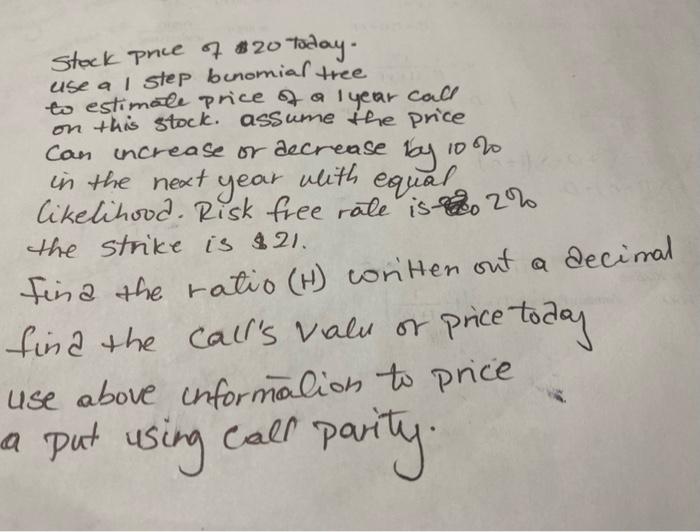 Stock price of $20 today.
use a 1 step binomial tree
to estimate price of a 1 year call
on this stock. assume the price
can increase or decrease by 10%
in the next year with equal
likelihood. Risk free rate is 2%
the strike is $21.
find the ratio (H) written out a decimal
find the call's valu or price today
use above information to price
a put using call parity.